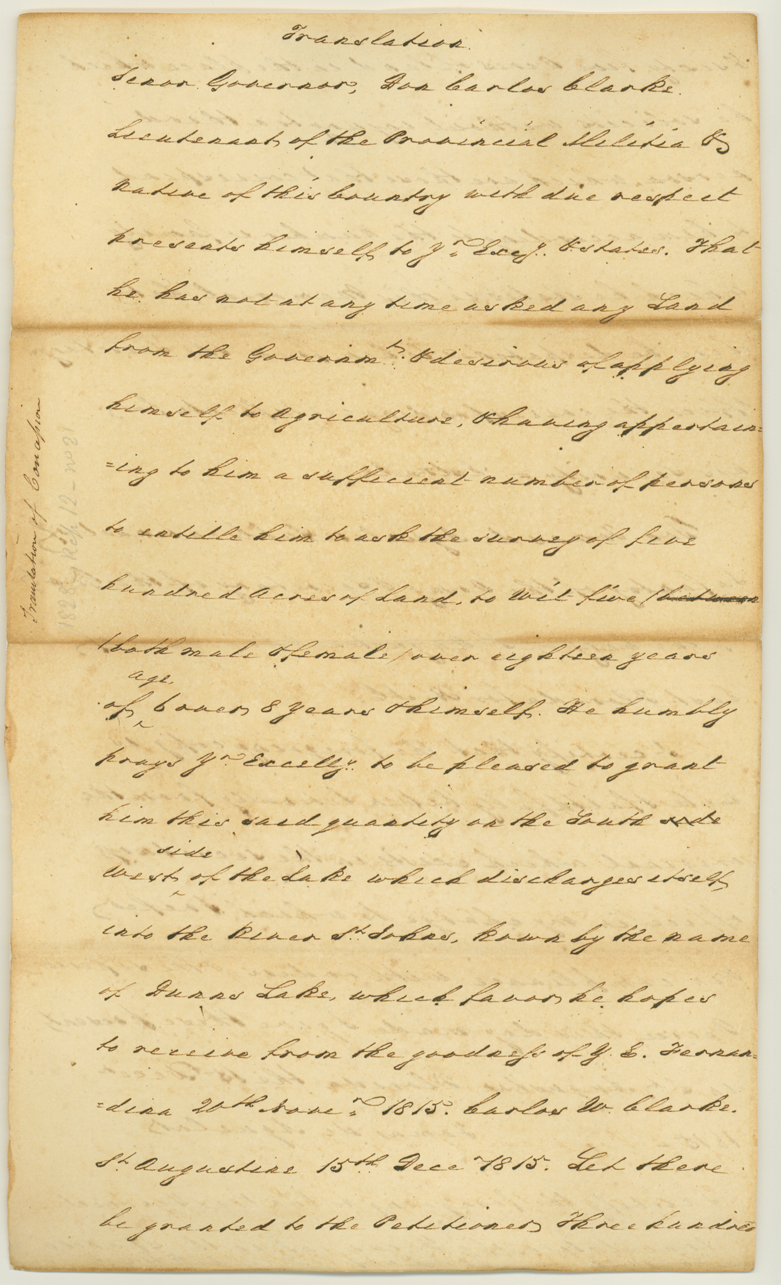 Translation.
Senor Governor, Don Carlos Clarke.
Lieutenant of the Provincial Militia &
Native of this Country with due respect
presents himself to Yr. Excey. & states. That
he has not at any time asked any Land
from the Governmt. & desirous of applying
himself to Agriculture, & having appertain=
=ing to him a sufficient number of persons
to intitle him to ask the survey of five
hundred Acres of Land, to Wit five / between
/ both male & female / over eighteen years
age
of 6 over 8 years & himself. He humbly
prays Yr. Excelly. to be pleased to grant
him this said quantity on the South side
side
West of the Lake which discharges itself
into the River St. Johns, known by the name
of Dunns Lake, which favor he hopes
to receive from the goodness of Y. E. Fernan=
=dina 20th Nover. 1815. Carlos W. Clarke.
St. Augustine 15th Decer 1815. Let there
be granted to the Petitioner, Three hundred
Translation of Concession